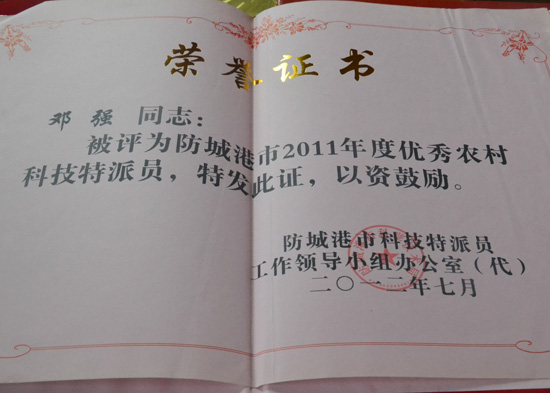 荣誉证书
邓强 同志：
被评为防城港市2011年度优秀农村
科技特派员，特发此证，以资鼓励。
防城港市科技特派员
工作领导小组办公室（代）
二〇一二年七月